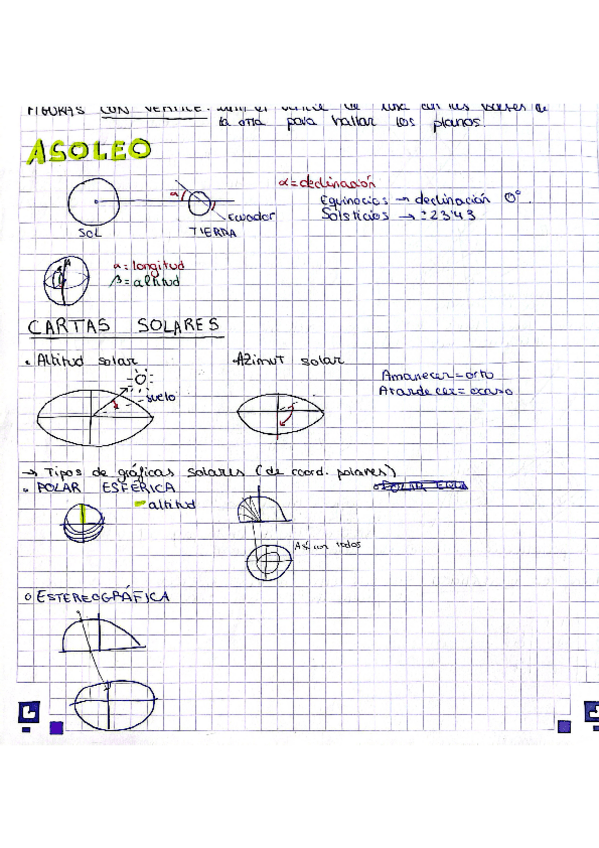 FIGURAS CON VÉRTICE:
la otra para hallar los planos.
ASOLEO
α = declinación
Equinocios → declinación 0°.
Solsticios → ± 23'43
α
Ecuador
SOL
TIERRA
α = longitud
β = altitud
CARTAS SOLARES
• Altitud solar
• Azimut solar
Amanecer = orto
Atardecer = ocaso
suelo
→ Tipos de gráficas solares (de coord. polares)
• POLAR ESFÉRICA
altitud
Así con todos
○ ESTEREOGRÁFICA